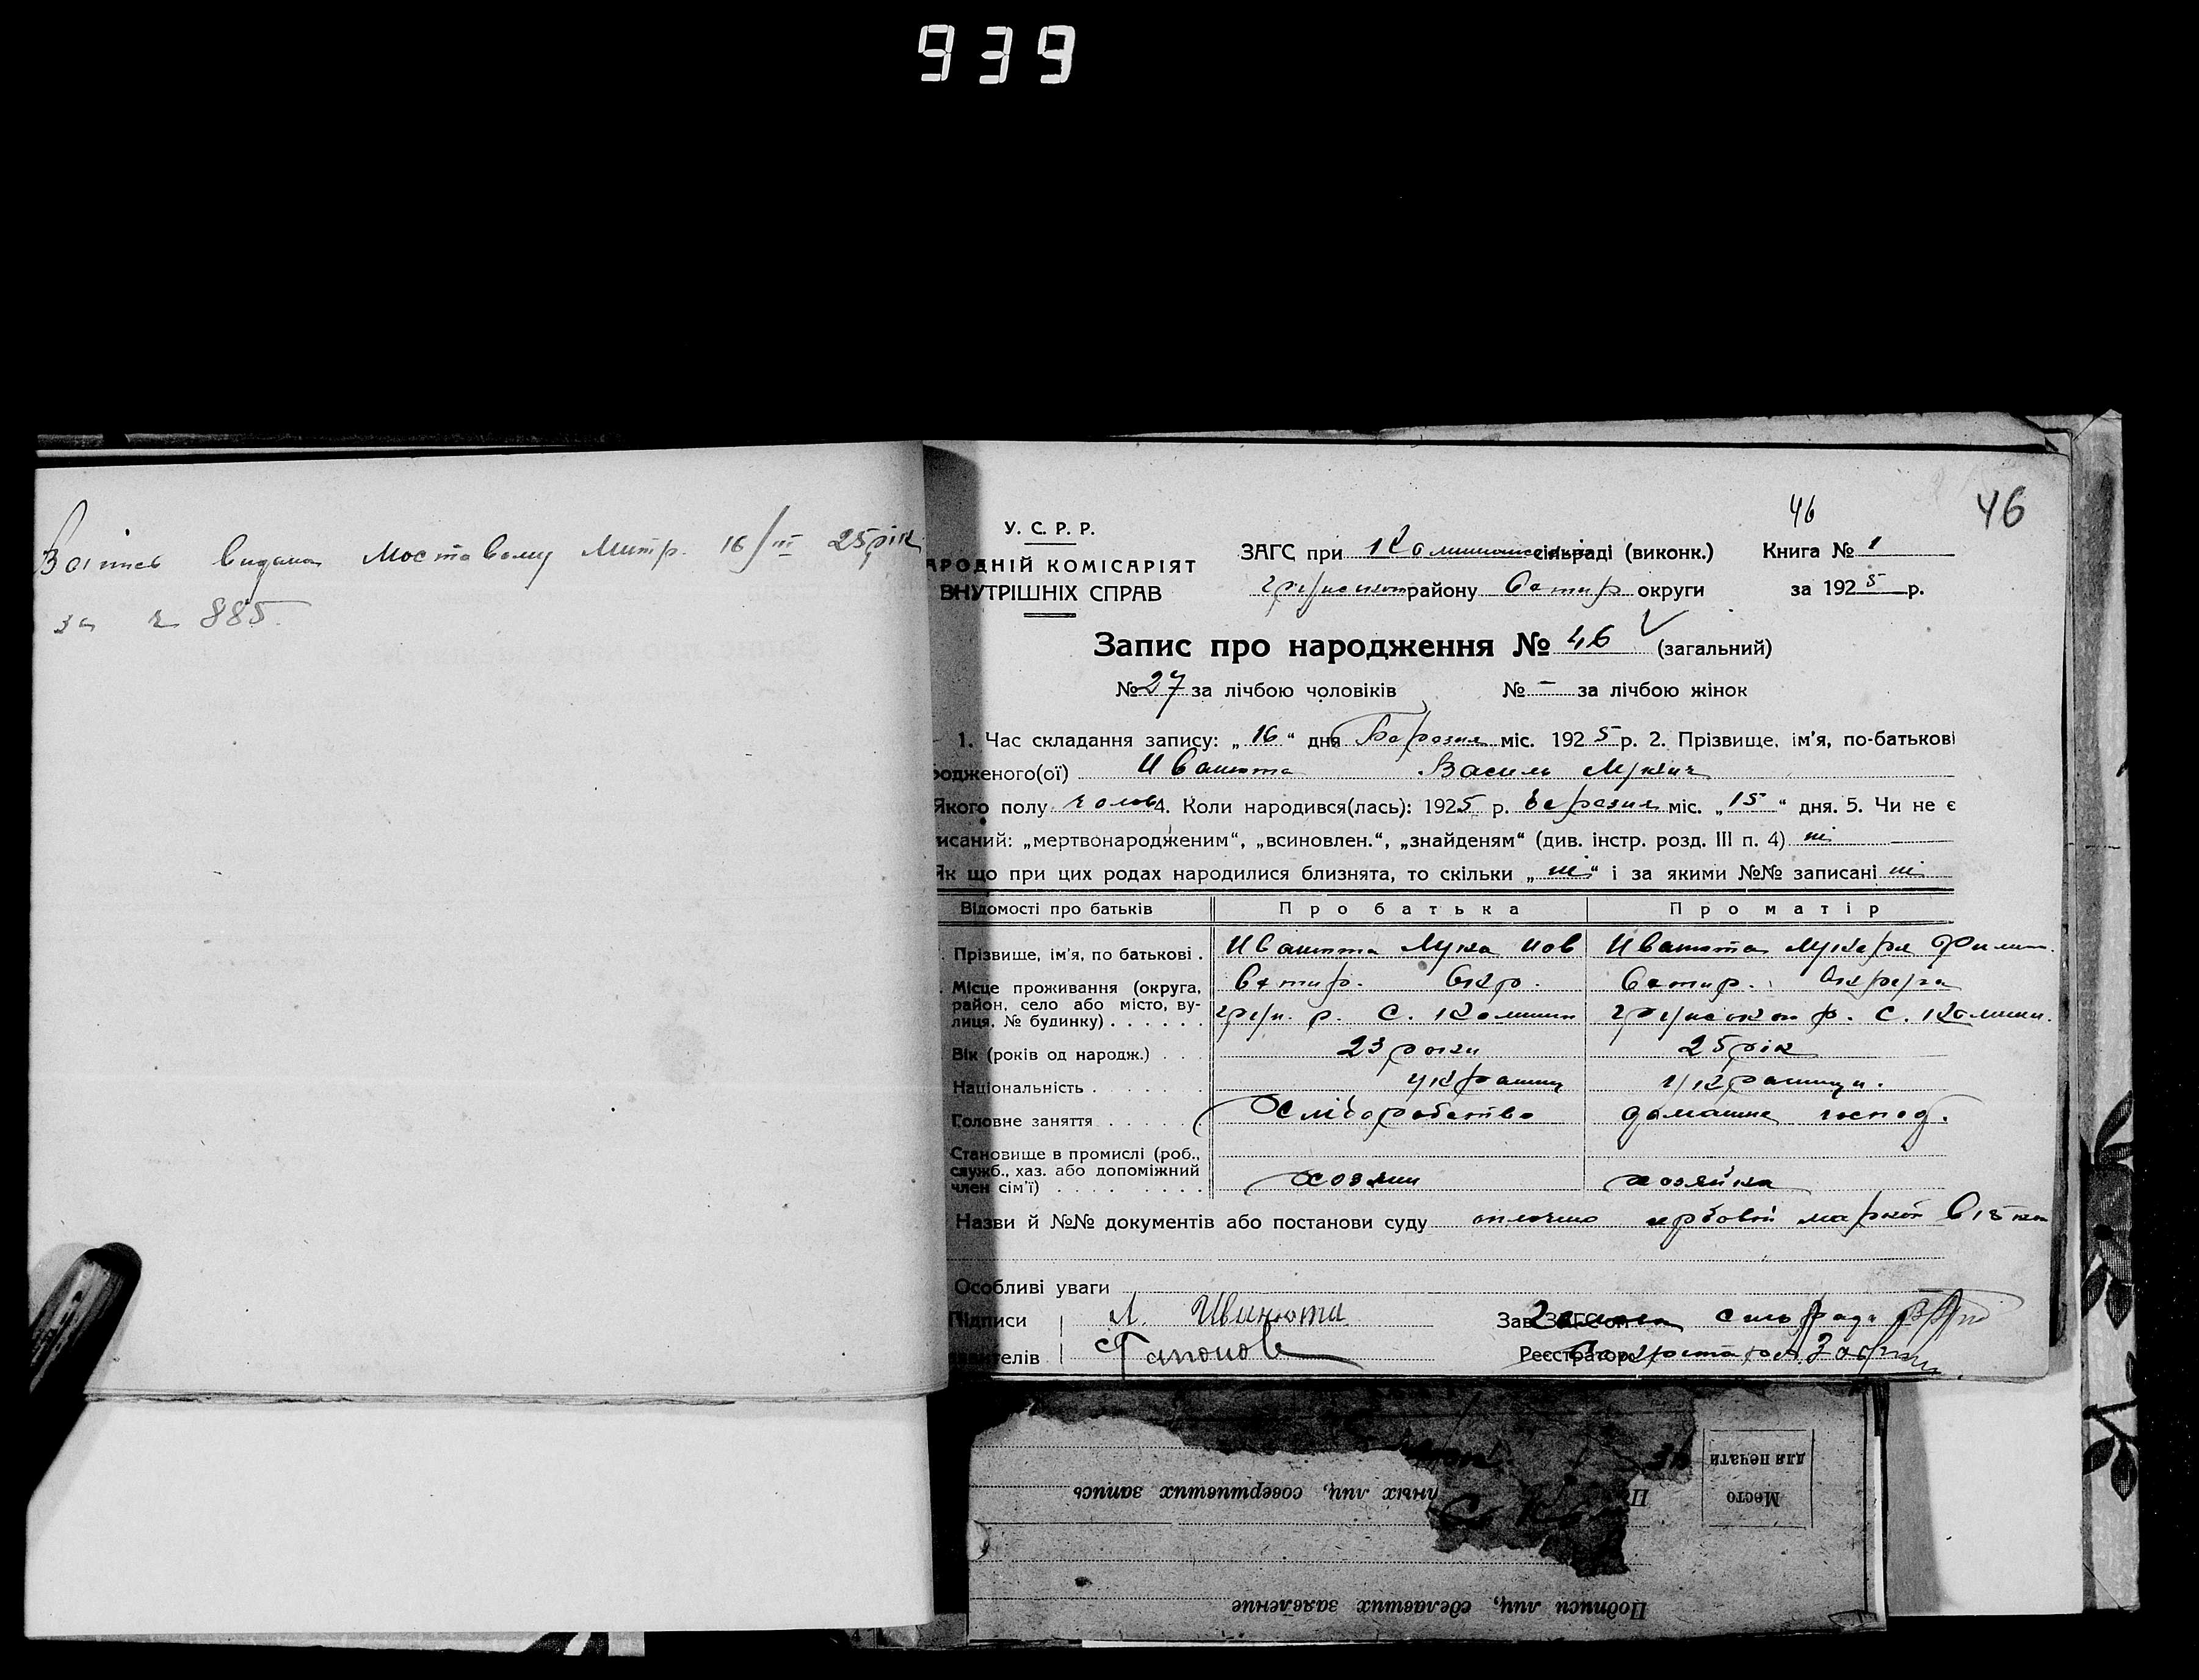 939
видана Мостовому Митр. 16/III 25 рік
за № 885.
46
46
У. С. Р. Р.
АРОДНІЙ КОМІСАРІЯТ
ВНУТРІШНІХ СПРАВ
ЗАГС при сільраді (виконк.) Книга № 1
району округи за 1925 р.
Запис про народження № 46 (загальний)
№ 27 за лічбою чоловіків № – за лічбою жінок
1. Час складання запису: „16“ дня Березня міс. 1925 р. 2. Прізвище, ім'я, по-батькові
родженого(ої) Ивашота Василь
Якого полу чолов 4. Коли народився(лась): 1925 р. березня міс. „15“ дня. 5. Чи не є
исаний: „мертвонародженим“, „всиновлен.“, „знайденям“ (див. інстр. розд. III п. 4) ні
Як що при цих родах народилися близнята, то скільки „ні“ і за якими №№ записані ні
Відомості про батьків Про батька Про матір
Прізвище, ім'я, по батькові . Ивашота Лука Иов Ивашота Лукеря Филип.
Місце проживання (округа, район, село або місто, вулиця, № будинку) . . . . . . Окр. Округа
р. С. Комиши р. С. Комиши.
Вік (років од народж.) . . . 23 роки 25 рік
Національність . . . . . українц українци.
Головне заняття . . . . . Хліборобство домашнє господ.
Становище в промислі (роб., служб., хаз. або допоміжний член сім'ї) . . . . . . . . хозяин хозяйка
Назви й №№ документів або постанови суду оплочено гербовой маркой в 15 коп
Особливі уваги
Підписи Л. Ивашота Зав. ЗАГСом Голова сильради
явителів Гапонов Реєстратор
Место
для печати
нных лиц, совершивших запись
Подписи лиц, сделавших заявление